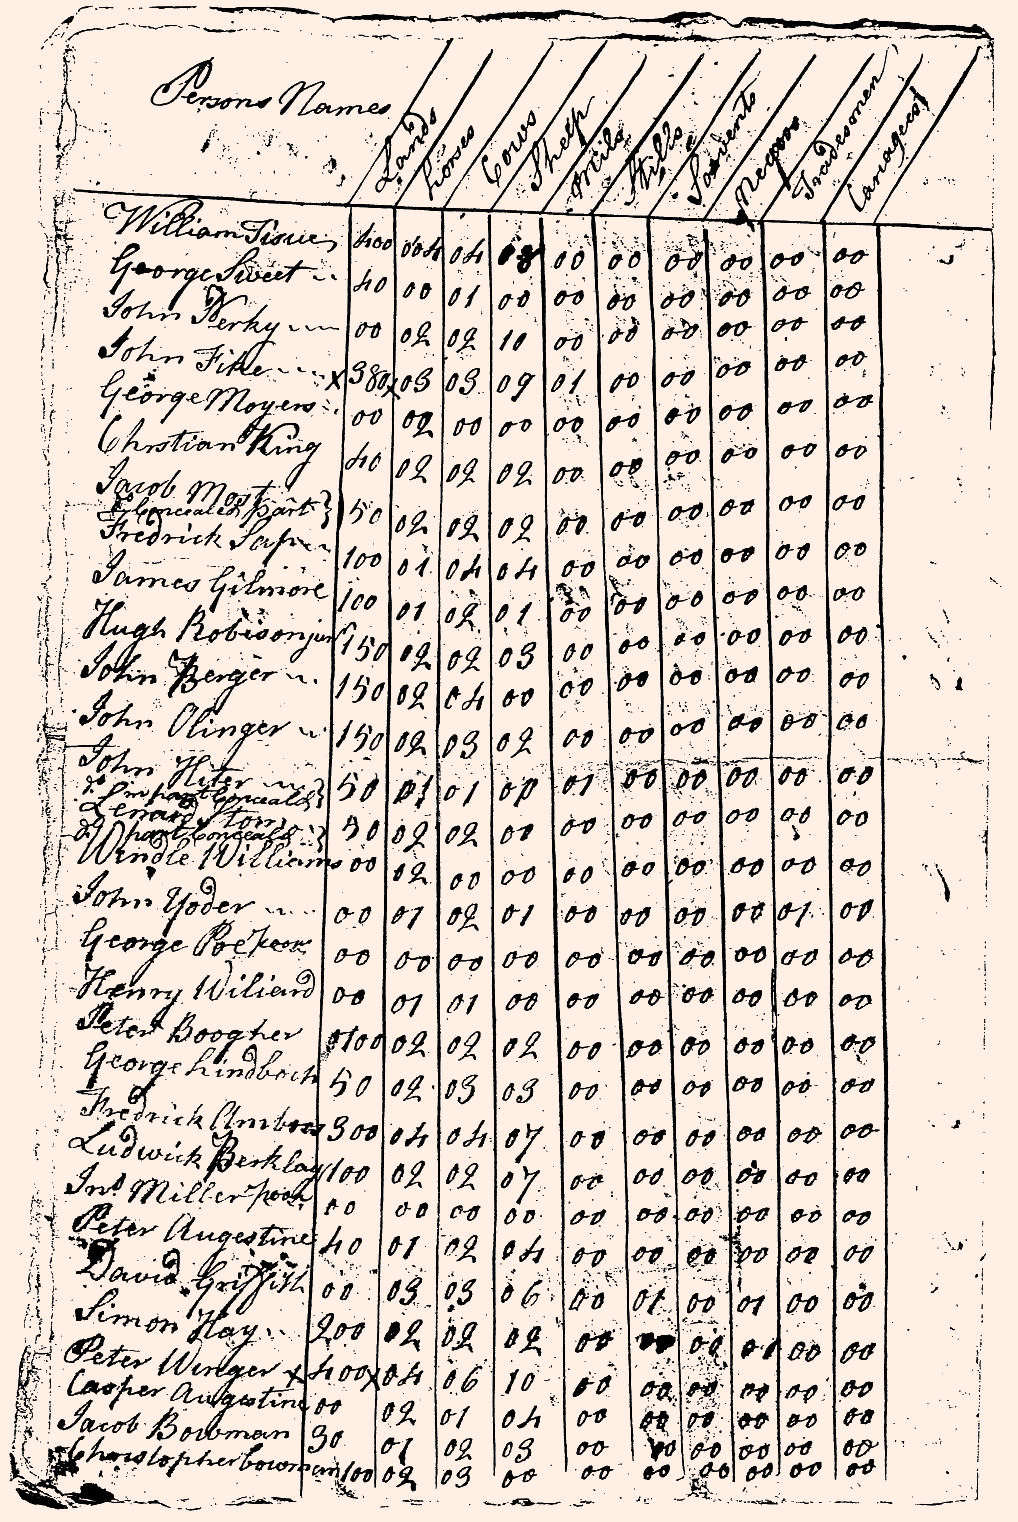 Persons Names Lands horses Cows Sheep Mils Stills Sarvents Negros Tradesmen Cariages
William Tisue 400 004 04 08 00 00 00 00 00 00
George Sweet 40 00 01 00 00 00 00 00 00 00
John Perky 00 02 02 10 00 00 00 00 00 00
John Fike x 380 x 03 03 09 01 00 00 00 00 00
George Moyers 00 02 00 00 00 00 00 00 00 00
Chrstian King 40 02 02 02 00 00 00 00 00 00
Jacob Most
Conceald part } 50 02 02 02 00 00 00 00 00 00
Fredrick 100 01 04 04 00 00 00 00 00 00
James Gilmore 100 01 02 01 00 00 00 00 00 00
Hugh Robison junr 150 02 02 03 00 00 00 00 00 00
John Berger 150 02 04 00 00 00 00 00 00 00
John Olinger 150 02 03 02 00 00 00 00 00 00
John Hiter 50 01 01 00 01 00 00 00 00 00
part Conceald }
50 02 02 00 00 00 00 00 00 00
part Conceald }
Windle Williams 00 02 00 00 00 00 00 00 00 00
John Yoder 00 01 02 01 00 00 00 00 01 00
George Poe poor 00 00 00 00 00 00 00 00 00 00
Henry Wiliard 00 01 01 00 00 00 00 00 00 00
Peter Boogher 0100 02 02 02 00 00 00 00 00 00
George Lindboch 50 02 03 03 00 00 00 00 00 00
Fredrick Ambros 300 04 04 07 00 00 00 00 00 00
Ludwick Berklay 100 02 02 07 00 00 00 00 00 00
Jno Miller poor 00 00 00 00 00 00 00 00 00 00
Peter Augestine 40 01 02 04 00 00 00 00 00 00
David Griffith 00 03 03 06 00 01 00 01 00 00
Simon Hay 200 02 02 02 00 00 01 00 00
Peter Winger x 400 x 04 06 10 00 00 00 00 00 00
Casper Augstine 00 02 01 04 00 00 00 00 00 00
Jacob Bowman 30 01 02 03 00 00 00 00 00 00
Christopher bowman 100 02 03 00 00 00 00 00 00 00